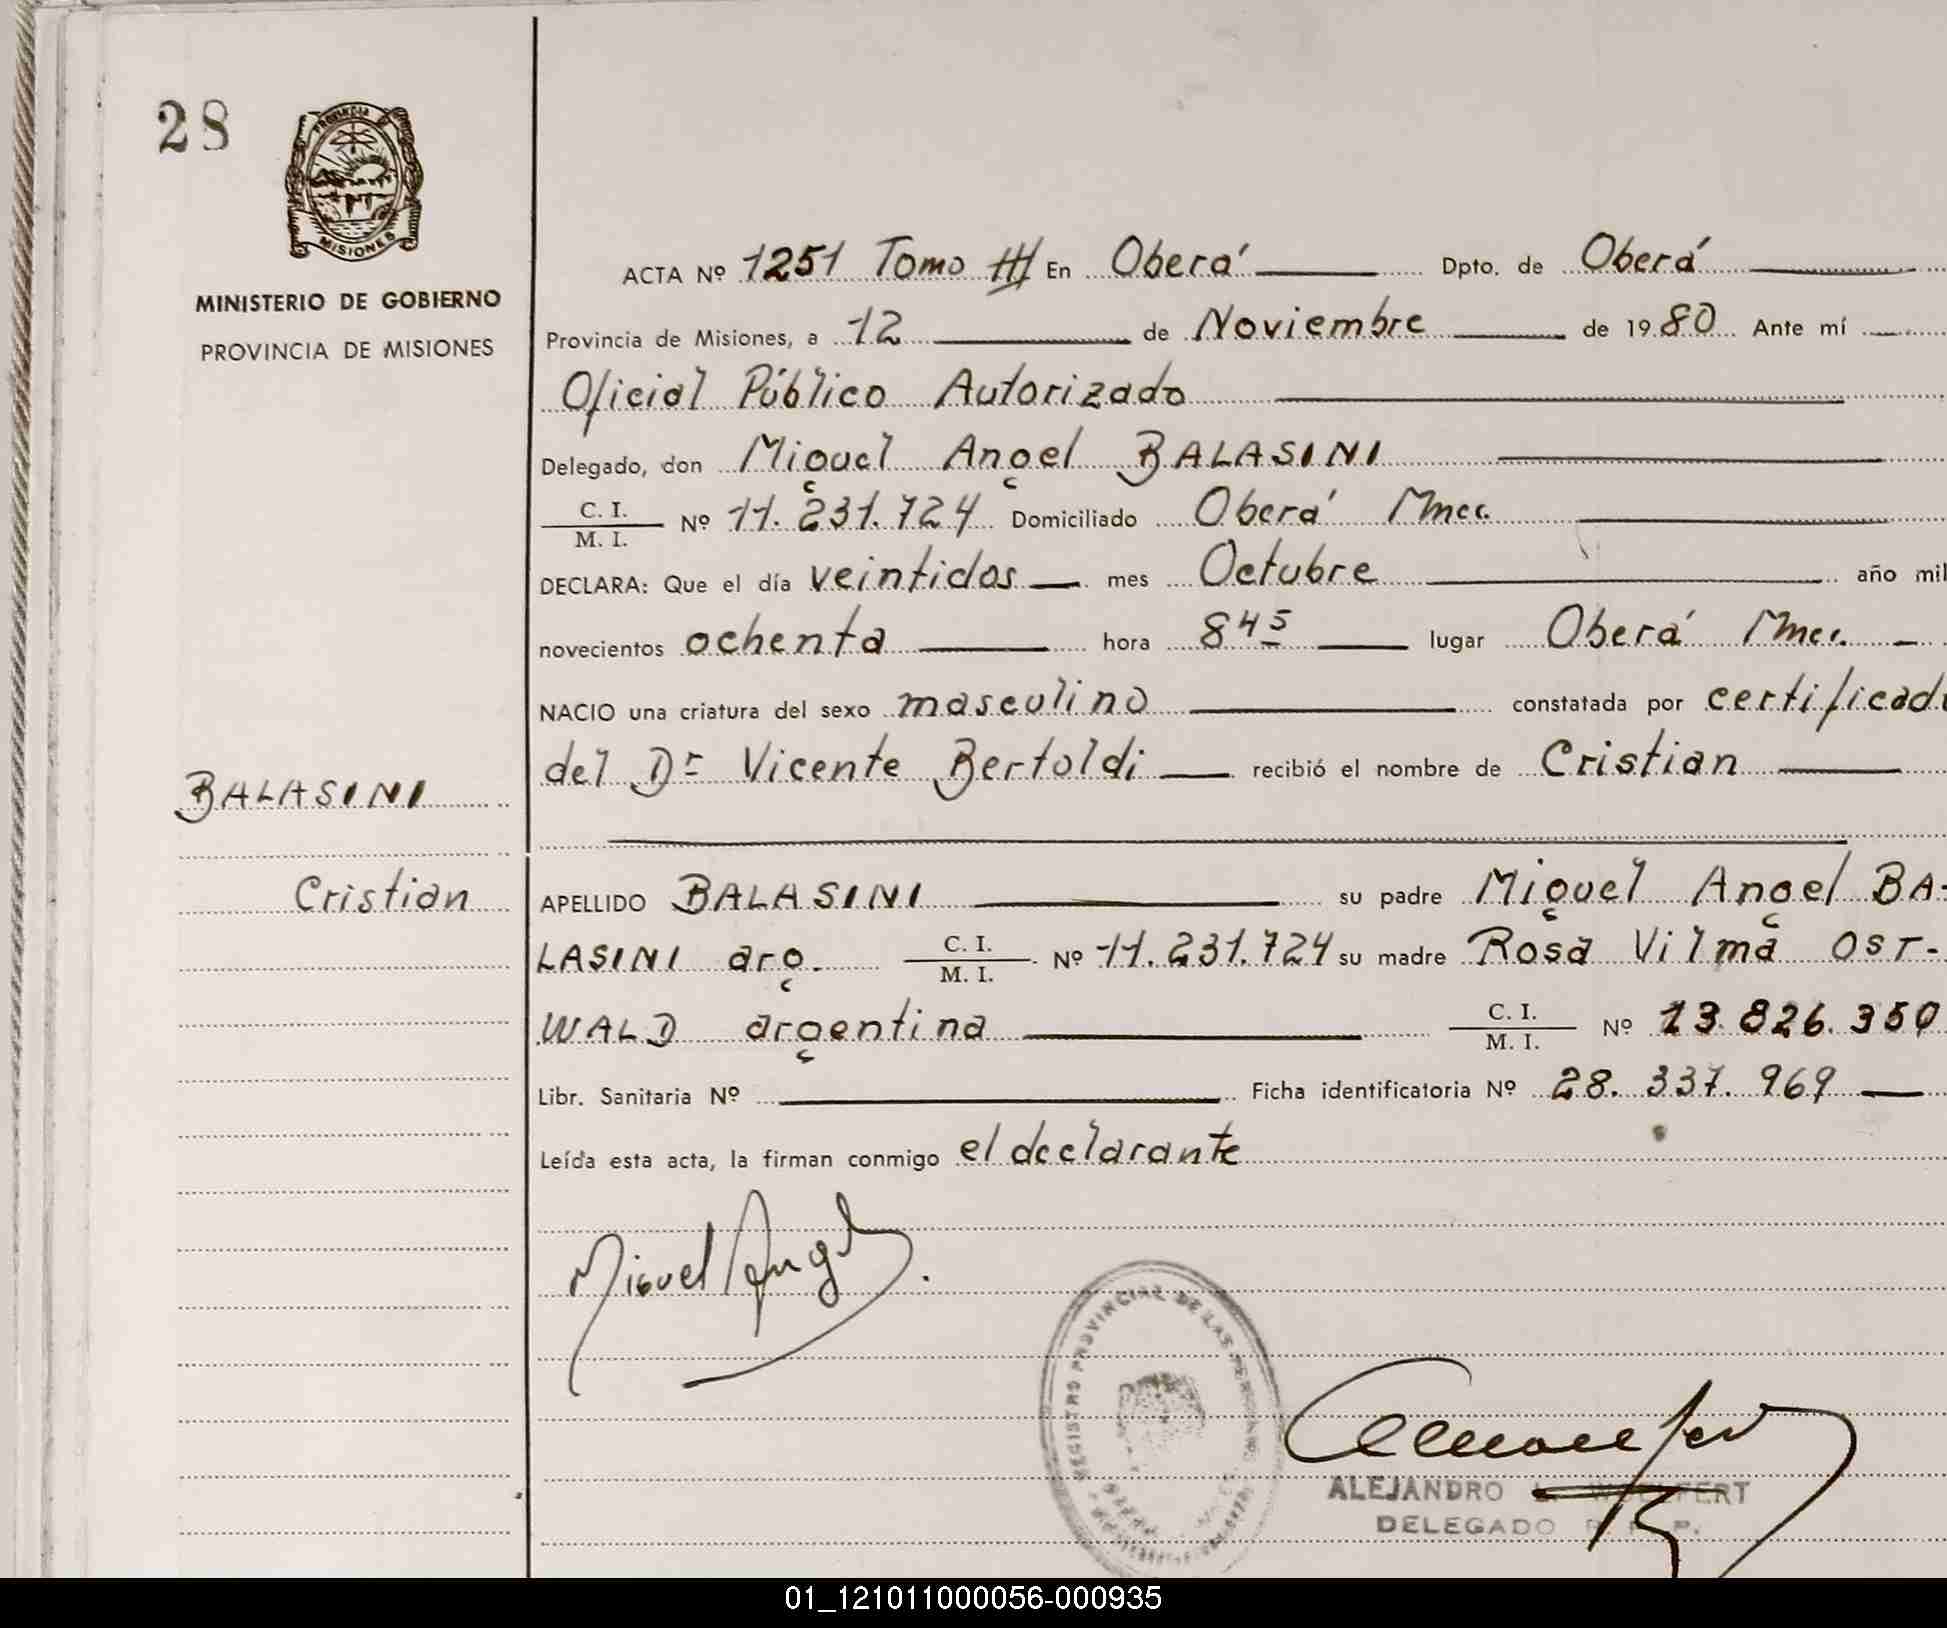 28
PROVINCIA
MISIONES
MINISTERIO DE GOBIERNO
PROVINCIA DE MISIONES
ACTA Nº 1251 Tomo III En Oberá Dpto. de Oberá
Provincia de Misiones, a 12 de Noviembre de 1980 Ante mí
Oficial Público Autorizado
Delegado, don Miguel Angel BALASINI
C. I.
M. I. Nº 11.231.724 Domiciliado Oberá Mnes.
DECLARA: Que el día veintidos mes Octubre año mil
novecientos ochenta hora 8 45 lugar Oberá Mnes.
NACIO una criatura del sexo masculino constatada por certificado
del Dr Vicente Bertoldi recibió el nombre de Cristian
BALASINI
Cristian
APELLIDO BALASINI su padre Miguel Angel BA-
LASINI arg. C. I. M. I. Nº 11.231.724 su madre Rosa Vilma OST-
WALD argentina C. I. M. I. Nº 13.826.350
Libr. Sanitaria Nº Ficha identificatoria Nº 28.337.969
Leída esta acta, la firman conmigo el declarante
Miguel Angel
REGISTRO PROVINCIAL DE LAS PERSONAS
ALEJANDRO L. WOLFERT
DELEGADO R. P. P.
01_121011000056-000935